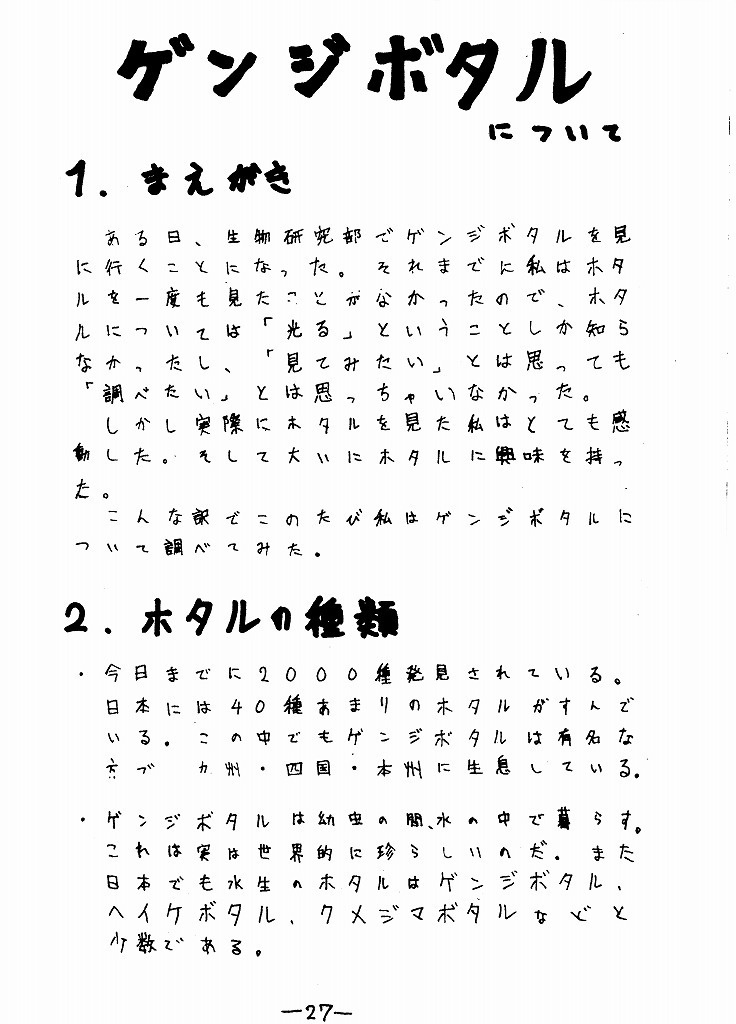 ゲンジボタル
について
1. まえがき
ある日、生物研究部でゲンジボタルを見
に行くことになった。それまでに私はホタ
ルを一度も見たことがなかったので、ホタ
ルについては「光る」ということしか知ら
なかったし、「見てみたい」とは思っても
「調べたい」とは思っちゃいなかった。
しかし実際にホタルを見た私はとても感
動した。そして大いにホタルに興味を持っ
た。
こんな訳でこのたび私はゲンジボタルに
ついて調べてみた。
2. ホタルの種類
・今日までに2000種発見されている。
日本には40種あまりのホタルがすんで
いる。この中でもゲンジボタルは有名な
方で 九州・四国・本州に生息している。
・ゲンジボタルは幼虫の間、水の中で暮らす。
これは実は世界的に珍らしいのだ。また
日本でも水生のホタルはゲンジボタル、
ヘイケボタル、クメジマボタルなどと
少数である。
—27—